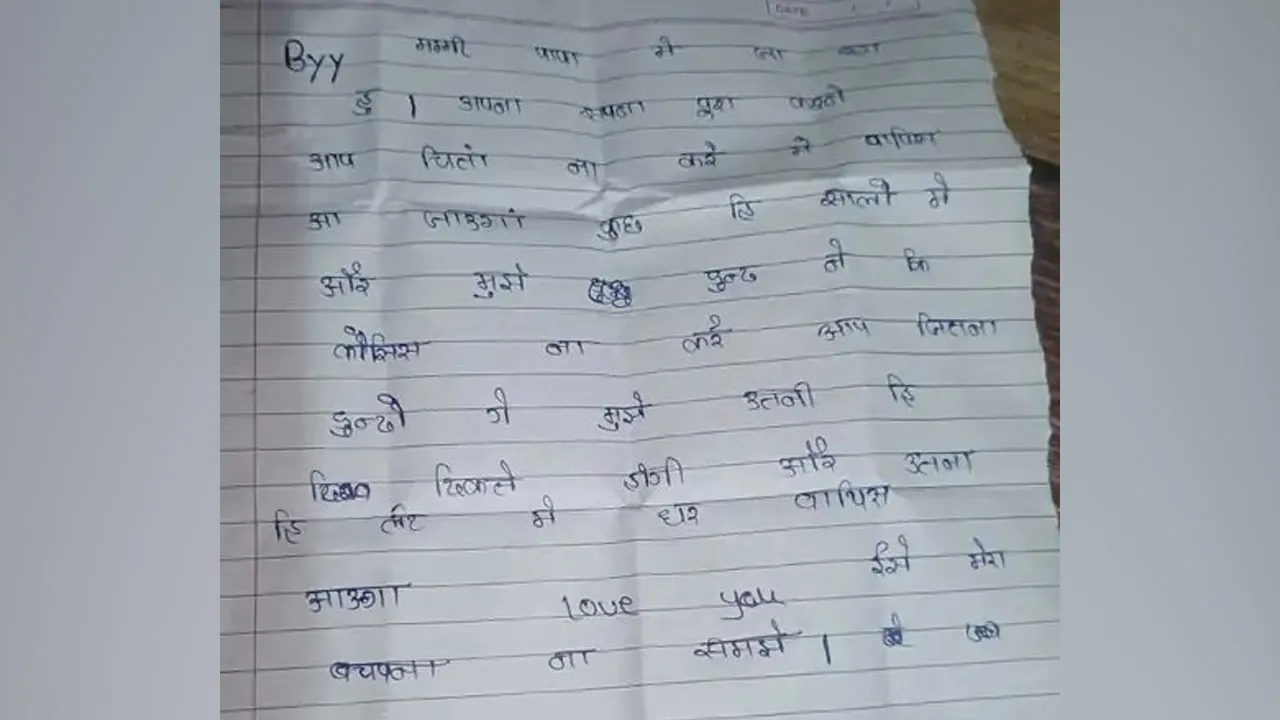 DATE
Byy मम्मी पापा मे जा रहा
हु । अपना सपना पूरा करने
आप चितां ना करे मे वापिस
आ जाउगां कुछ हि सालो मे
और मुझे ढुन्ढ ने कि
कौसिस ना करे आप जितना
ढुन्ढो गे मुझे उतनी हि
दिक्कते होगी और उतना
हि लेट मे घर वापिस
आउगा love you ईसे मेरा
बचपना ना समझे ।